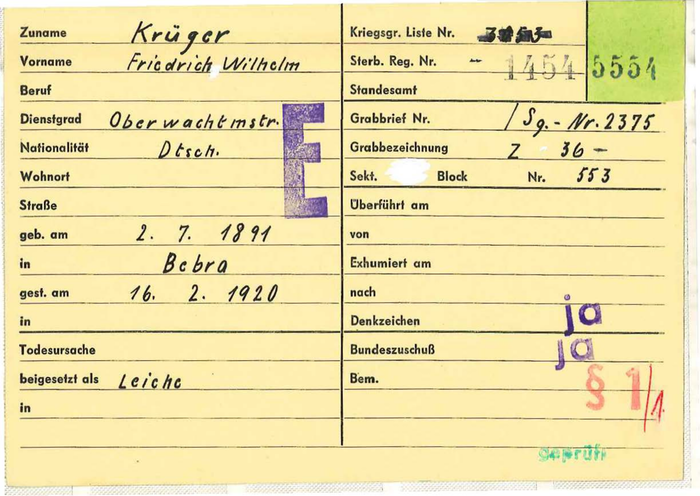 Zuname Krüger
Vorname Friedrich Wilhelm
Beruf
Dienstgrad Oberwachtmstr.
Nationalität Dtsch.
Wohnort
Straße
geb. am 2. 7. 1891
in Bebra
gest. am 16. 2. 1920
in
Todesursache
beigesetzt als Leiche
in
E
Kriegsgr. Liste Nr.
Sterb. Reg. Nr. - 1454 5554
Standesamt
Grabbrief Nr. / Sg.-Nr. 2375
Grabbezeichnung Z 36 -
Sekt. Block Nr. 553
Überführt am
von
Exhumiert am
nach
Denkzeichen ja
Bundeszuschuß ja
Bem. § 1/1
geprüft